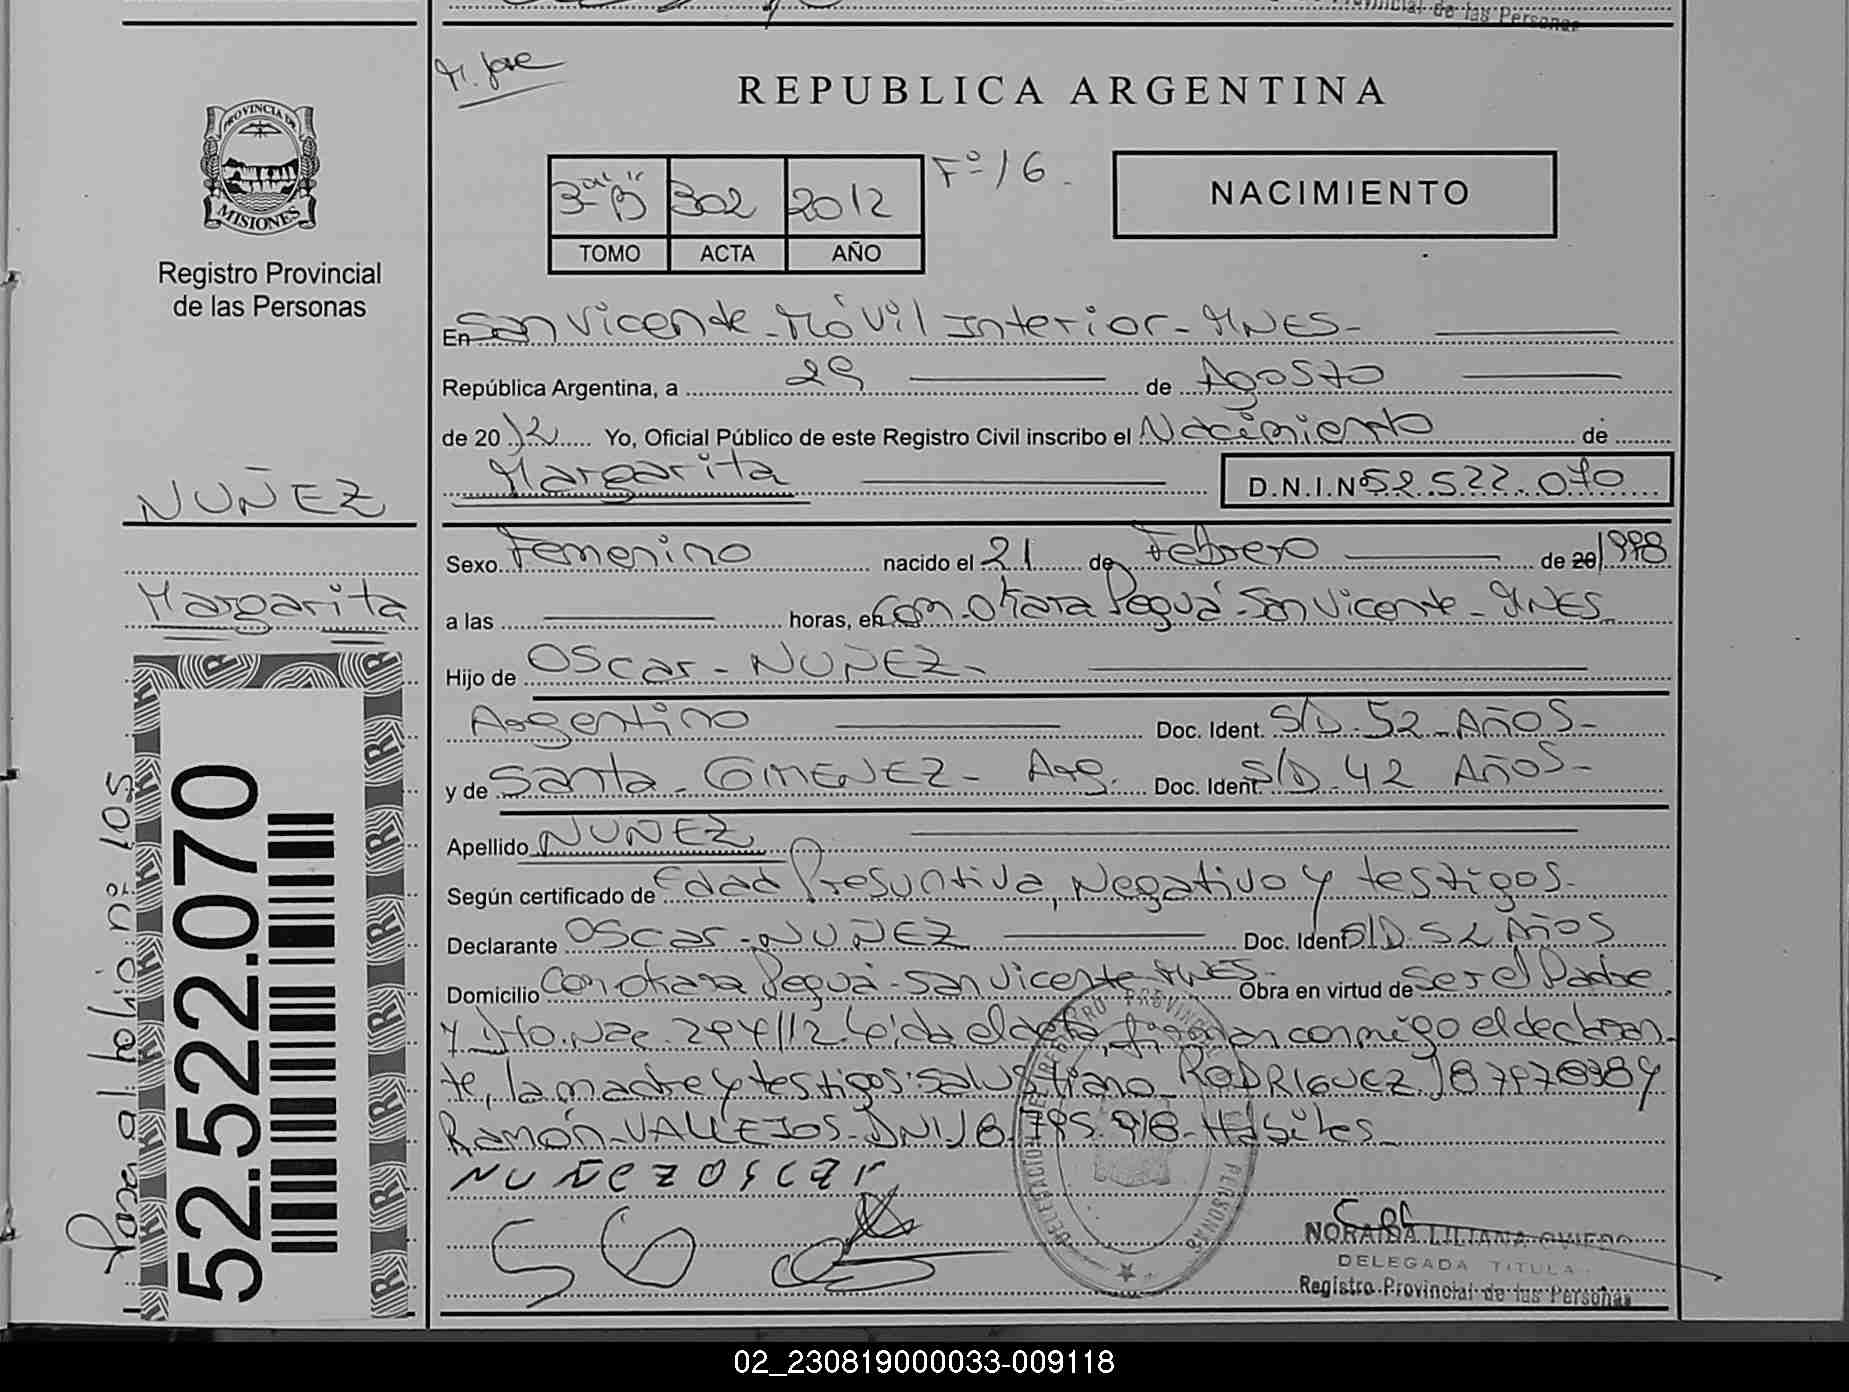 Provincial de las Personas
M. José
REPUBLICA ARGENTINA
PROVINCIA DE
MISIONES
Registro Provincial
de las Personas
3-"B" 302 2012 Fº 16.
TOMO ACTA AÑO
NACIMIENTO
En San Vicente - Móvil Interior - MNES -
República Argentina, a 29 de Agosto
de 2012 Yo, Oficial Público de este Registro Civil inscribo el Nacimiento de
Margarita D.N.I.Nº 52.522.070
NUÑEZ
Margarita
Sexo Femenino nacido el 21 de Febrero de 20 1998
a las horas, en Com. Okara Peguá - San Vicente - MNES
Hijo de Oscar - NUÑEZ -
Argentino Doc. Ident. S/D. 52 AÑOS -
y de Santa - GIMENEZ - Arg. Doc. Ident. S/D. 42 AÑOS -
Apellido NUÑEZ
Según certificado de Edad Presuntiva, Negativo y testigos -
Declarante Oscar - NUÑEZ Doc. Ident S/D. 52 AÑOS
Domicilio Com Okara Peguá - San Vicente - MNES - Obra en virtud de Ser el Padre
y Dto. Nac. 294/12. Leída el acta, firman conmigo el declaran-
te, la madre y testigos: Salustiano RODRIGUEZ
Ramón VALLEJOS - DNI 18.795.918 - Hábiles
NUÑEZ OSCAR
S G
NORAIDA LILIANA OVIEDO
DELEGADA TITULA
Registro Provincial de las Personas
Pasa al folio nº 105
52.522.070
02_230819000033-009118